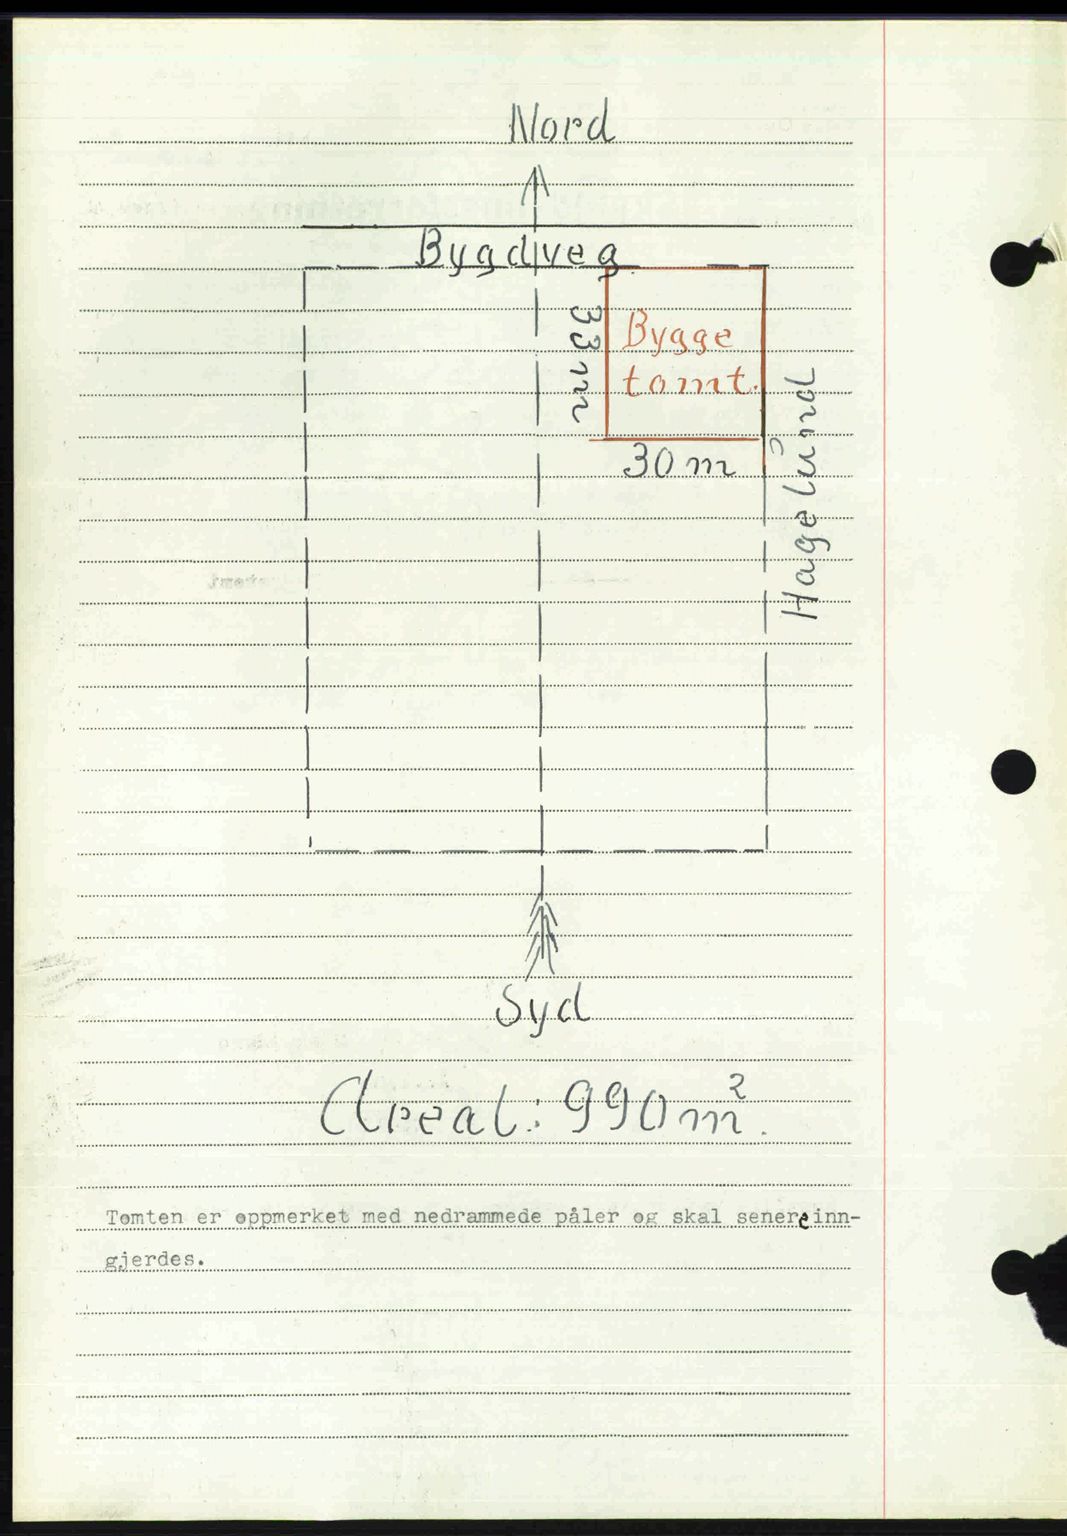 Nord
Bygdveg
33 m
Bygge
tomt.
30 m
Hagelund
Syd
Areal: 990 m².
Tomten er oppmerket med nedrammede påler og skal senere inn-
gjerdes.